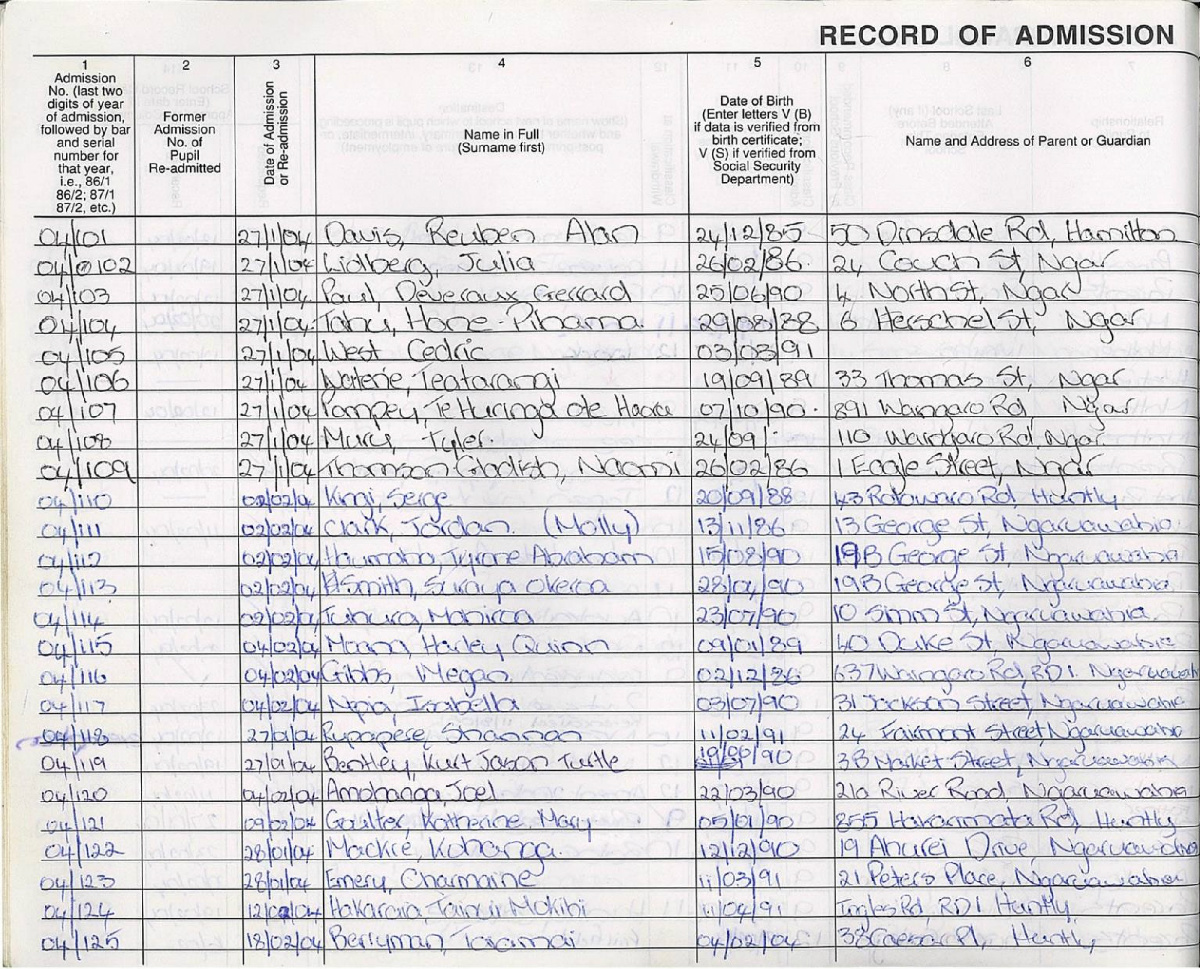 RECORD OF ADMISSION
1 2 3 4 5 6
Admission No. (last two digits of year of admission, followed by bar and serial number for that year, i.e., 86/1 86/2; 87/1 87/2, etc.)
Former Admission No. of Pupil Re-admitted
Date of Admission or Re-admission
Name in Full (Surname first)
Date of Birth (Enter letters V (B) if data is verified from birth certificate; V (S) if verified from Social Security Department)
Name and Address of Parent or Guardian
04/101 27/1/04 Davis, Reuben Alan 24/12/85 50 Dinsdale Rd, Hamilton
04/102 27/1/04 Lidberg, Julia 26/02/86. 24 Couch St, Ngar
04/103 27/1/04 Paul, Deveraux Gerrard 25/06/90 4 North St, Ngar
04/104 27/1/04 Tahu, Hone-Piharma 29/08/88 6 Herschel St, Ngar
04/105 27/1/04 West Cedric 03/03/91
04/106 27/1/04 Waterie, Teatarangi 19/09/89 33 Thomas St, Ngar
04/107 27/1/04 Pompey, Te Huringa ote 07/10/90. 891 Waingaro Rd Ngar
04/108 27/1/04 Muru, Tyler 24/09/ 110 Waingaro Rd, Ngar
04/109 27/1/04 Thomson Gladish, Naomi 26/02/86 1 Eagle Street, Ngar
04/110 02/02/04 Kingi, Serge 20/09/88 43 Rotowaro Rd, Huntly
04/111 02/02/04 Clark, Jordan. (Molly) 13/11/86 13 George St, Ngaruawahia
04/112 02/02/04 Haumaha, Tyrone Abraham 15/08/90 19B George St, Ngaruawahia
04/113 02/02/04 Smith, Suraya Okeroa 28/04/90 19B George St, Ngaruawahia
04/114 02/02/04 Tuhura, Monicca 23/07/90 10 Simm St, Ngaruawahia
04/115 04/02/04 Moana, Harley Quinn 09/01/89 40 Duke St, Ngaruawahia
04/116 04/02/04 Gibbs, Megan 02/12/86 637 Waingaro Rd, RD1. Ngaruawahia
04/117 04/02/04 Nepia, Isabella 03/07/90 31 Jackson Street, Ngaruawahia
04/118 27/01/04 Rupapere, Shannan 11/02/91 24 Fairmont Street, Ngaruawahia
04/119 27/01/04 Bentley, Kurt Jason Turtle /90 38 Market Street, Ngaruawahia
04/120 04/02/04 Amohanga, Joel 22/03/90 21a River Road, Ngaruawahia
04/121 09/02/04 Goulter, Katherine Mary 05/01/90 855 Hakarimata Rd, Huntly
04/122 28/01/04 Mackie, Kohanga 12/12/90 19 Ahurei Drive, Ngaruawahia
04/123 28/01/04 Emery, Charmaine 11/03/91 21 Peters Place, Ngaruawahia
04/124 12/02/04 Hakaraia, Tainui Mokihi 11/04/91 Ingles Rd. RD1 Huntly
04/125 18/02/04 Berryman, Taramai 04/02/04 38 Caesar Pl, Huntly